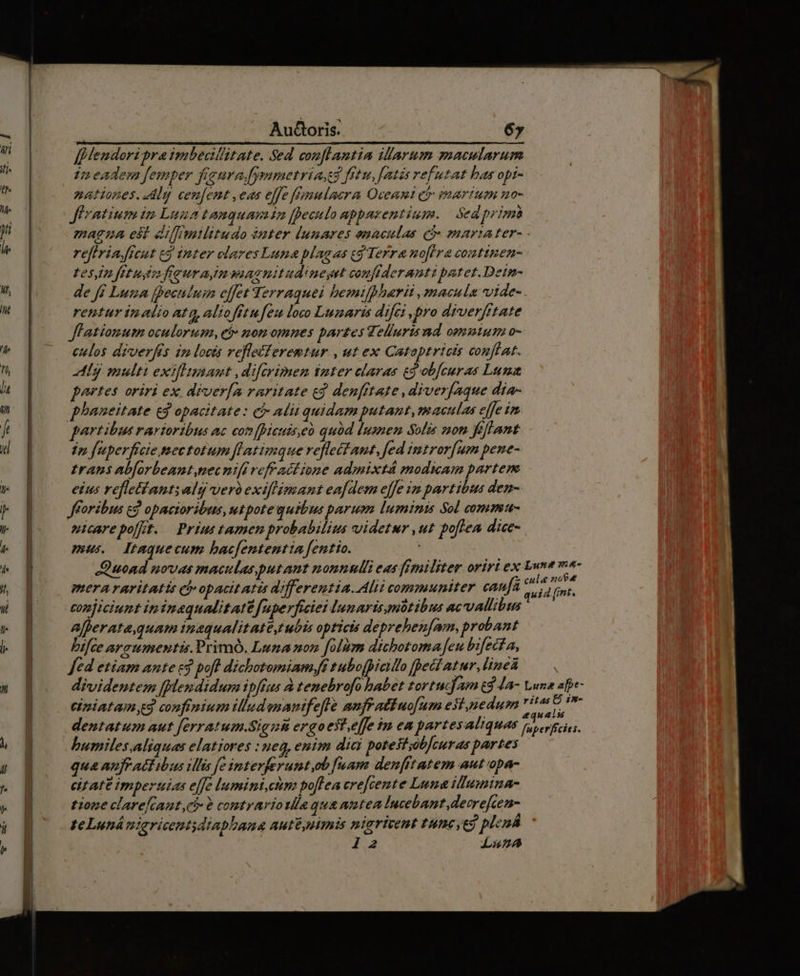 Auctoris. 67
ſplendori præ imbecillitate. Sed conſtantia illarum macularum
in eadem ſemper figura, ſymmetria, & ſitu, ſatis refutat has opi-
nationes. Alij cenſent, eas eſſe ſimulacra Oceani & marium no-
ſtratium in Luna tanquam in ſpeculo apparentium. Sed primò
magna eſt diſſimilitudo inter lunares maculas & maria ter-
reſtria, ſicut & inter clares Lunæ plagas & Terræ noſtræ continen-
tes, in ſitu, in figura, in magnitudine, ut conſideranti patet. Dein-
de ſi Luna ſpeculum eſſet Terraquei hemiſphærii, maculæ vide-
rentur in alio atq, alio ſitu ſeu loco Lunaris diſci, pro diverſitate
ſtationum oculorum, & non omnes partes Telluris ad omnium o-
culos diverſis in locis reflecterentur, ut ex Catoptricis conſtat.
Alij multi exiſtimant, diſcrimen inter claras & obſcuras Lunæ
partes oriri ex diverſa raritate & denſitate, diverſaque dia-
phaneitate & opacitate: & alii quidam putant, maculas eſſe in
partibus rarioribus ac conſpicuis, eò quòd lumen Solis non ſiſtant
in ſuperficie, nec totum ſtatimque reflectant, ſed introrſum pene-
trans abſorbeant, nec niſi refractione admixtâ modicam partem
eius reflectant; alij verò exiſtimant eaſdem eſſe in partibus den-
ſioribus & opacioribus, utpote quibus parum luminis Sol commu-
nicare poſſit. Prius tamen probabilius videtur, ut poſtea dice-
mus. Itaque cum hac ſententia ſentio.
Quoad novas maculas, putant nonnulli eas ſimiliter oriri ex
Lunæ ma-
culæ novæ
quid ſint.
mera raritatis & opacitatis differentia. Alii communiter cauſā
conjiciunt in inæqualitatē ſuperficiei lunaris, mōtibus ac vallibus
aſperatæ, quam inæqualitatē, tubis opticis deprehenſam, probant
hiſce argumentis. Primò. Luna non ſolùm dichotoma ſeu biſecta,
ſed etiam ante & poſt dichotomiam, ſi tuboſpicillo ſpectatur, lineā
dividentem ſplendidum ipſius à tenebroſo habet tortuoſam & la-
Lunæ aſpe-
ritas & in-
æqualis
ſuperficies.
ciniatam, & confinium illud manifeſtè anfractuoſum eſt, nedum
dentatum aut ferratum. Signū ergo eſt, eſſe in ea partes aliquas
humiles, aliquas elatiores: neq, enim dici poteſt, obſcuras partes
quæ anfractibus illis ſe interſerunt, ob ſuam denſitatem aut opa-
citatē imperuias eſſe lumini, cùm poſtea creſcente Luna illumina-
tione clareſcant, & è contrario illæ quæ antea lucebant, decreſcen-
te Lunâ nigricent; diaphana autē, nimis nigricent tunc, & plenâ
l 2 Luna